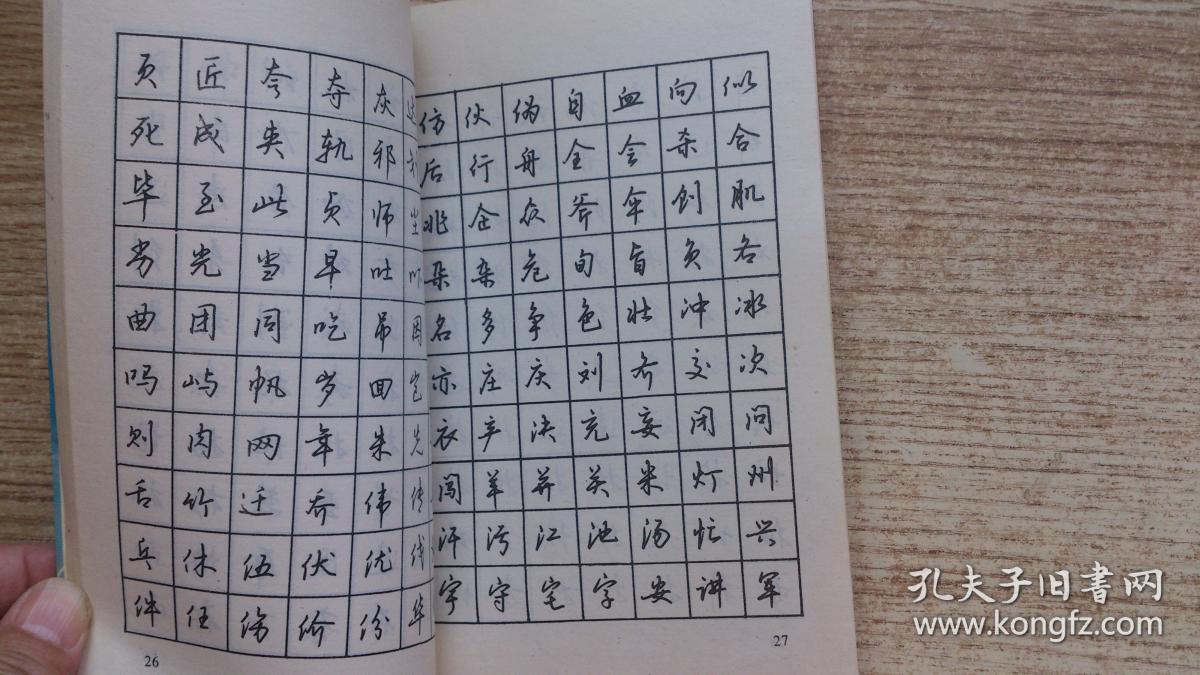 页 匠 夸 夺 灰 达
死 成 夹 轨 邪
毕 至 此 贞 师 尘
劣 光 当 早 吐 吓
曲 团 同 吃 吊 因
吗 屿 帆 岁 回 岂
则 肉 网 年 朱 先
舌 竹 迁 乔 伟 传
乓 休 伍 伏 优 伐
件 任 伤 价 份 华
26
仿 伙 伪 自 血 向 似
后 行 舟 全 会 杀 合
兆 企 众 爷 伞 创 肌
朵 杂 危 旬 旨 负 各
名 多 争 色 壮 冲 冰
亦 庄 庆 刘 齐 交 次
衣 产 决 充 妄 闭 问
闯 羊 并 关 米 灯 州
汗 污 江 池 汤 忙 兴
宇 守 宅 字 安 讲 军
27
孔夫子旧书网
www.kongfz.com